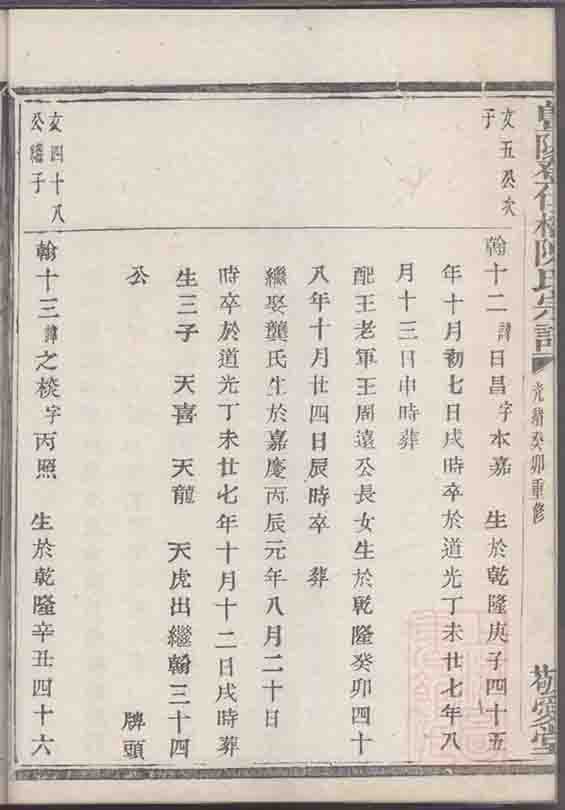 陳氏宗譜
光緒癸卯重修
敬愛堂
文五公次
子
翰十二諱日昌字本嘉 生於乾隆庚子四十五
年十月初七日戌時卒於道光丁未廿七年八
月十三日申時葬
配王老軍王周遠公長女生於乾隆癸卯四十
八年十月廿四日辰時卒 葬
繼娶龔氏生於嘉慶丙辰元年八月二十日
時卒於道光丁未廿七年十月十二日戌時葬
生三子 天喜 天龍 天虎出繼翰三十四
公 牌頭
文四十八
公繼子
翰十三諱之棪字丙照 生於乾隆辛丑四十六